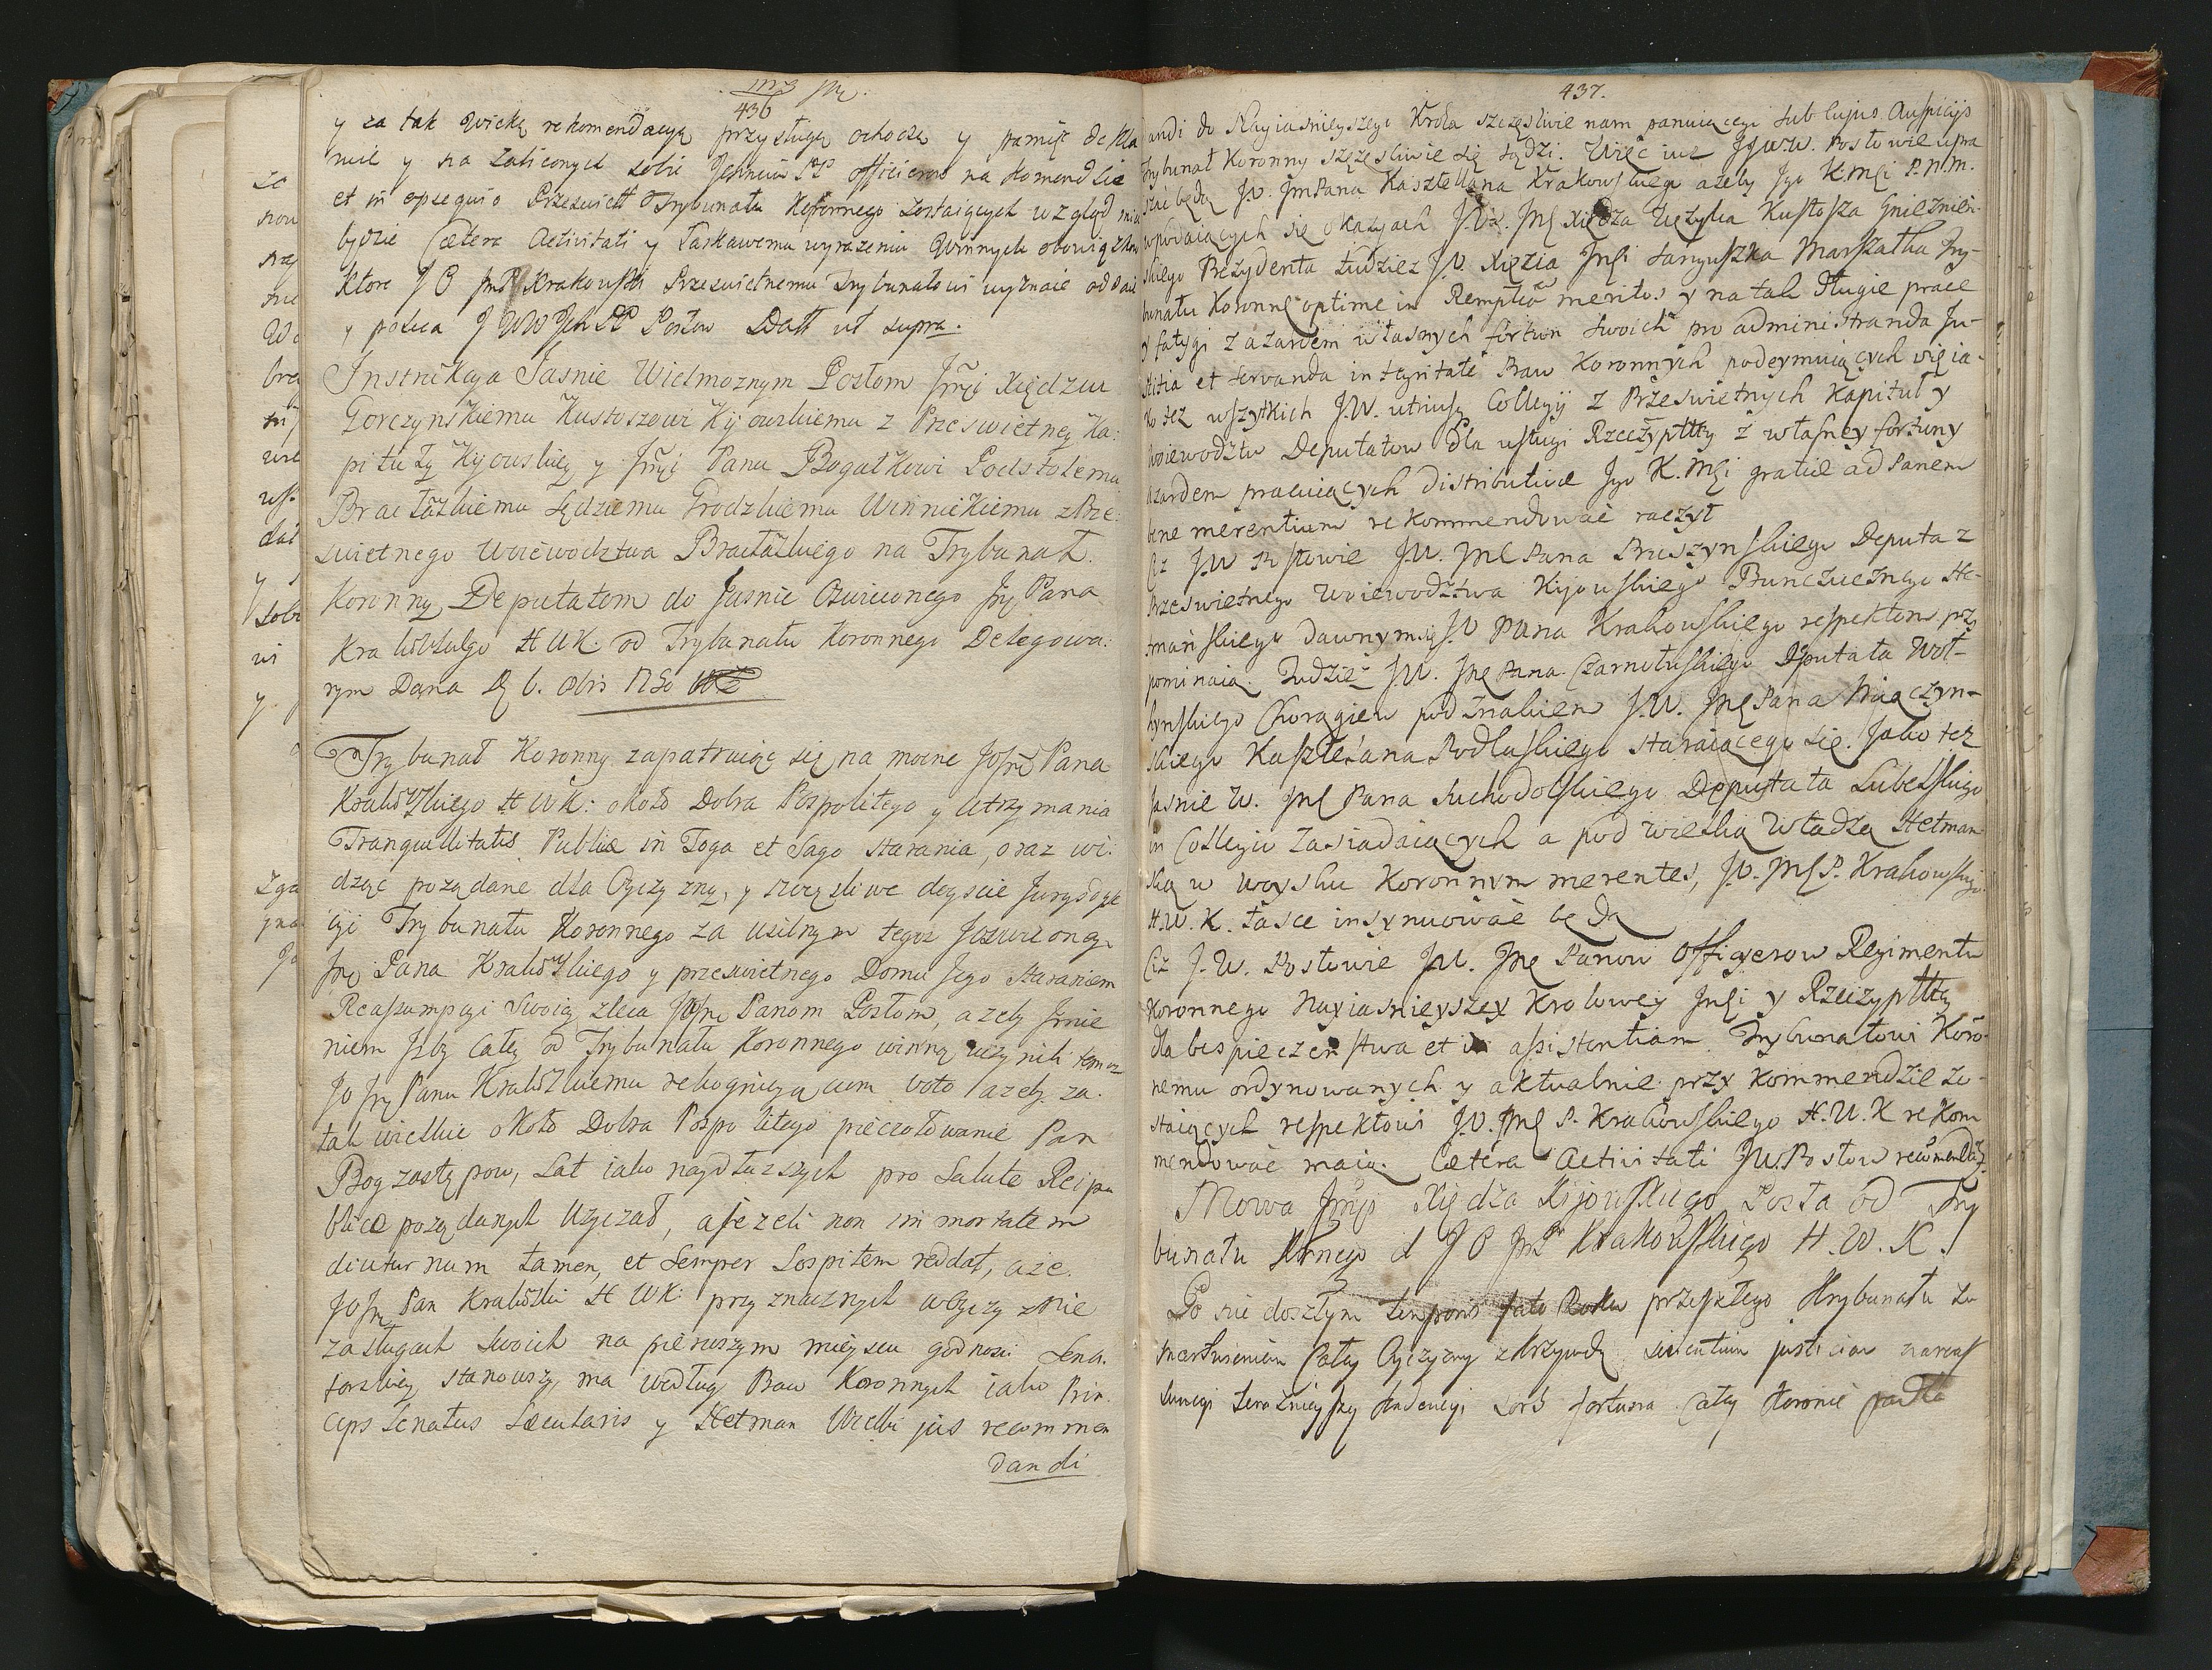 436
y za tak wielką rekomendacyą przysługę ochoczą y pamięć dekla
ruie y na zaliconych sobie Jchmciow PP officierow na Komendzie
et in opsequio Przeswiett Trybunału Koronnego zostaiących wzgląd mieć
będzie Cætera Activitati y Łaskawemu wyrazeniu Winnych obowiązkow
Ktore J O JmP Krakowski Przeswietnemu Trybunałowi wyznaie oddaie
y poleca J WW Jch PP Posłow Datt ut supra.
Instrukcya Jasnie Wielmoznym Posłom Jmći Xiędzu
Gorczynskiemu Kustoszowi Kijowskiemu z Przeswietney Ka:
pituły Kijowskiey y Jmći Panu Bogatkowi Podstolemu
Bracłaskiemu Sędziemu Grodzkiemu Winnickiemu z Prze:
swietnego Woiewodztwa Bracłaskiego na Trybunał
Koronny Deputatom do Jasnie Oswieconego Jmć Pana
Krakowskiego H WK: od Trybunału Koronnego Delegowa:
nym Dana D 6. 8bris 1750
Trybunał Koronny zapatruiąc się na mocne JOJmć Pana
Krakowskiego H WK: około Dobra Pospolitego y utrzymania
Tranquillitatis Publicæ in Toga et Sago starania, oraz wi:
dząc pożądane dla Oyczyzny, y szczęsliwe doyscie Jurysdyk
cyi Trybunału Koronnego za usilnym tegoz JOswieconego
Jmć Pana Krakowskiego y przeswietnego Domu Jego staraniem
Reassumpcyi swoią zleca JWJmć Panom Posłom, azeby Jmie
niem Izby całey od Trybunału Koronnego winną uczynili temuz
JO Jmć Panu Krakowskiemu rekognicyą cum voto azeby za
tak wielkie około Dobra Pospolitego pieczołowanie Pan
Bog zastępow, Lat iako naydłuzszych pro Salute Reipu
blicæ pożądanych Uzyczał, ajezeli non immortalem
diuturnum tamen, et semper Sospitem reddat, aże
JOJmć Pan Krakowski H WK: przy znacznych w Oyczyznie
zasługach swoich na pierwszym mieyscu godnosci Sena:
torskiey stanowszy, ma według Praw Koronnych iako Prin:
ceps Senatus Sæcularis y Hetman Wielki jus recommen
dandi
437.
andi do Nayiasnieyszego Krola szczęsliwie nam panuiącego sub cujus Auspicijs
Trybunał Koronny szczęsliwie się sądzi. Więc iuz JJWW. Posłowie upra
szać będą JW. JmPana Kasztellana Krakowskiego azeby Jgo K.Mći P.N.M.
w podaiących się okazyach J.W. JmC Xiędza Uczyka Kustosza Gnieznien:
skiego Prezydenta tudziesz J.O. Xięzia Jmći Sanguszka Marszałka Try-
bunału Koronnc optime in Remplcā meritos y na tak długie prace
y fatygi z azardem własnych fortun swoich pro administranda Ju-
stitia et servanda integritate Praw Koronnych podeymuiących się ia-
ko tez wszytkich J.W. utriusq Collegij z Przeswietnych Kapituł y
Woiewodztw Deputatow dla usługi Rzeczyptty z własney fortuny
azardem pracuiących distributivæ Jgo K.Mći gratiæ ad Panem
bene merentium rekommendować raczył
Ciz J.W Posłowie J.W. JmC Pana Pruszynskiego Deputa z
Przeswietnego Woiewodztwa Kijowskiego Bunczucznego He-
tmańskiego dawnym J.O Pana Krakowskiego respektom przy
pominaią. Tudziesz J.W. JmC Pana Czarnołuskiego Dputata Woł-
hynskiego Chorągiew pod znakiem J.W. JmC Pana Miączyn-
skiego Kasztelana Podlaskiego staraiącego się. Jako tez
Jasnie W. JmC Pana Suchodolskiego Deputata Lubelskiego
in Collegio zasiadaiących a pod wielką Władzą Hetman
ską w woysku Koronnym merentes, J.O. JmC P. Krakowskiego
H.W.K. łasce insynuować będą
Ciz J.W. Posłowie JW. JmC Panow Officyerow Regimentu
Koronnego Nayiasnieyszey Krolowey Jmći y Rzeczyptty
dla bespieczenstwa et in assistentiam Trybunałowi Koro-
nnemu ordynowanych y aktualnie przy Kommendzie zo-
staiących respektowi J.O. JmC P. Krakowskiego H.W.K rekom
mendować maią. Cætera Activitati JW. Posłow recōmendat.
Mowa Jmp Xiędza Kijowskiego Posła od Try
bunału Kornnego d J O JmP Krakowskiego H. W. K.
Po nie doszłym temporis fato Roku przeszłego Trybunału za
martwieniem całey Oyczyzny z krzywdą sientium justiciam
terazniejszey Kadencyi sors fortuna całey Koronie padła